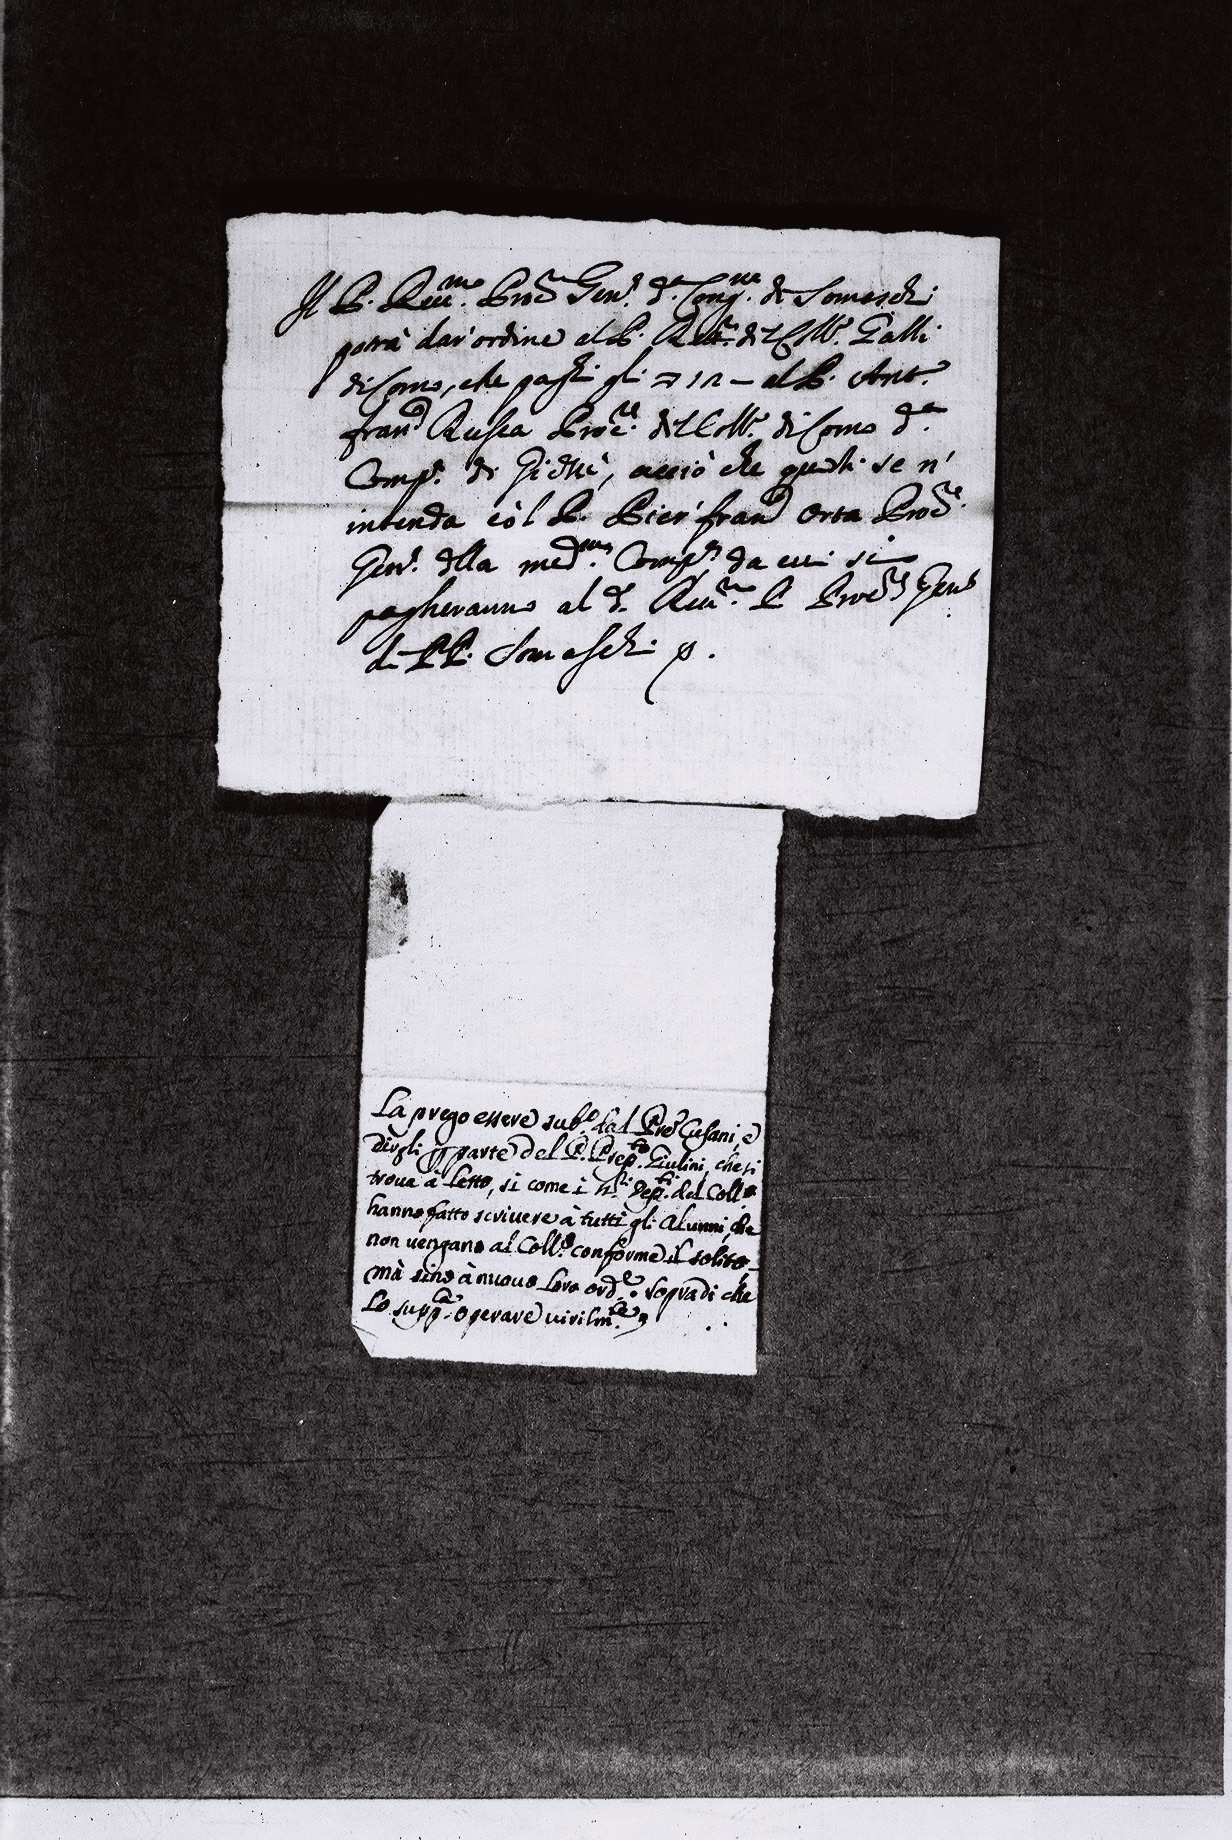 Il P. Reu.mo Proc.re Gen.l d.a Cong.ne di Somaschi
potrà dar'ordine al P. Rett.re dil Coll.o Galli
di Como, che paghi gli 12 — al P. Ant.o
fran.co Rusca Proc.re dil Coll.o di Como d.a
Comp.a di Giesù, acciò che questi se n'
intenda cól P. Pier'fran.co Orta Proc.re
Gen.l della med.ma Comp.a da cui si
pagheranno al d.o Reu.mo P. Proc.re Gen.l
di PP. Somaschi
La prego essere sub.o dal Pre Cusani, e
dirgli parte del P. Prep.to Giulini, che si
troua à letto, si come i ss.ri Dep.ti del Coll.o
hanno fatto scrivere à tutti gli Alunni, che
non uengano al Coll.o conforme il solito
mà sino à nuouo loro ord.e sopra di che
Lo supp.ca operare uirilm.te